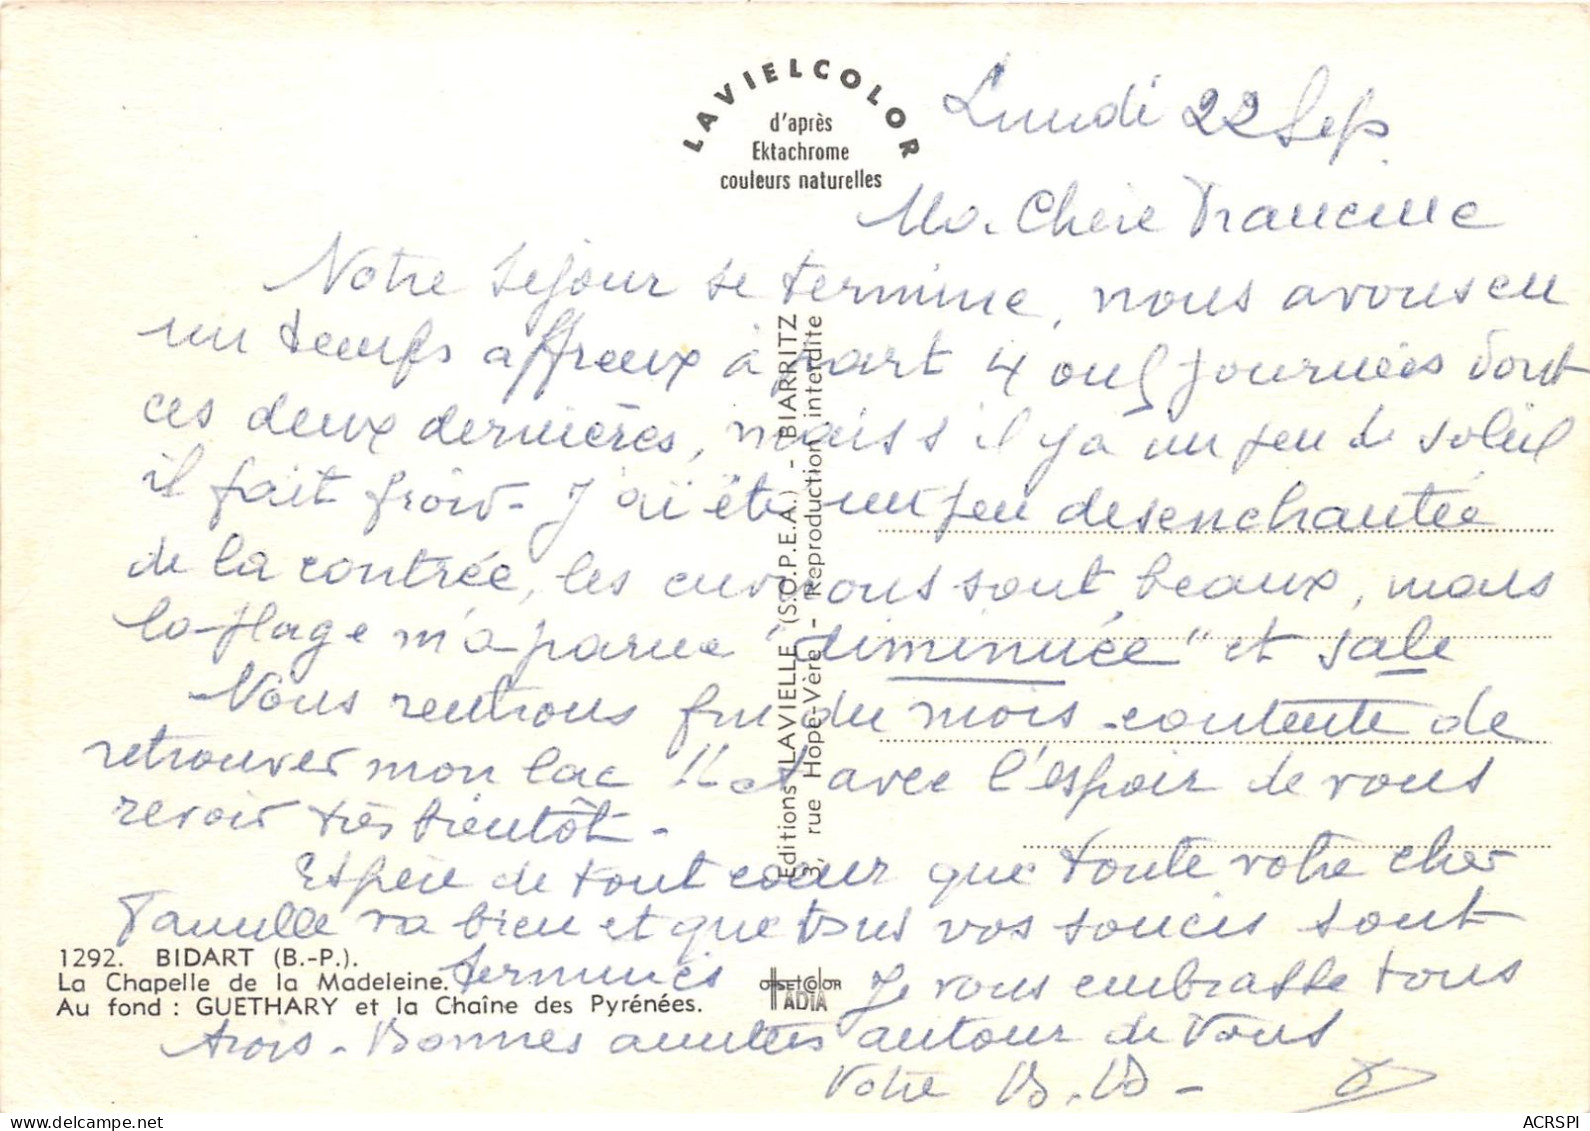 LAVIELCOLOR
d'après
Ektachrome
couleurs naturelles
Lundi 22 Sep.
Ma Chère Francine
Notre séjour se termine, nous avons eu
un temps affreux à part 4 ou 5 journées dont
ces deux dernières, mais s'il y a un peu de soleil
il fait froid - J'ai été un peu desenchantée
de la contrée, les environs sont beaux, mais
la plage m'a parue "diminuée" et sale
Nous rentrons fin du mois contente de
retrouver mon lac !! et avec l'espoir de vous
revoir très bientôt -
Espère de tout coeur que toute votre cher
Famille va bien et que tous vos soucis sont
terminés Je vous embrasse tous
trois - Bonnes amitiés autour de vous
Votre
Editions LAVIELLE (S.O.P.E.A.) - BIARRITZ
3, rue Hope-Vère - Reproduction interdite
1292. BIDART (B.-P.).
La Chapelle de la Madeleine.
Au fond : GUETHARY et la Chaîne des Pyrénées.
OFFSETCOLOR
IADIA
ACRSPI